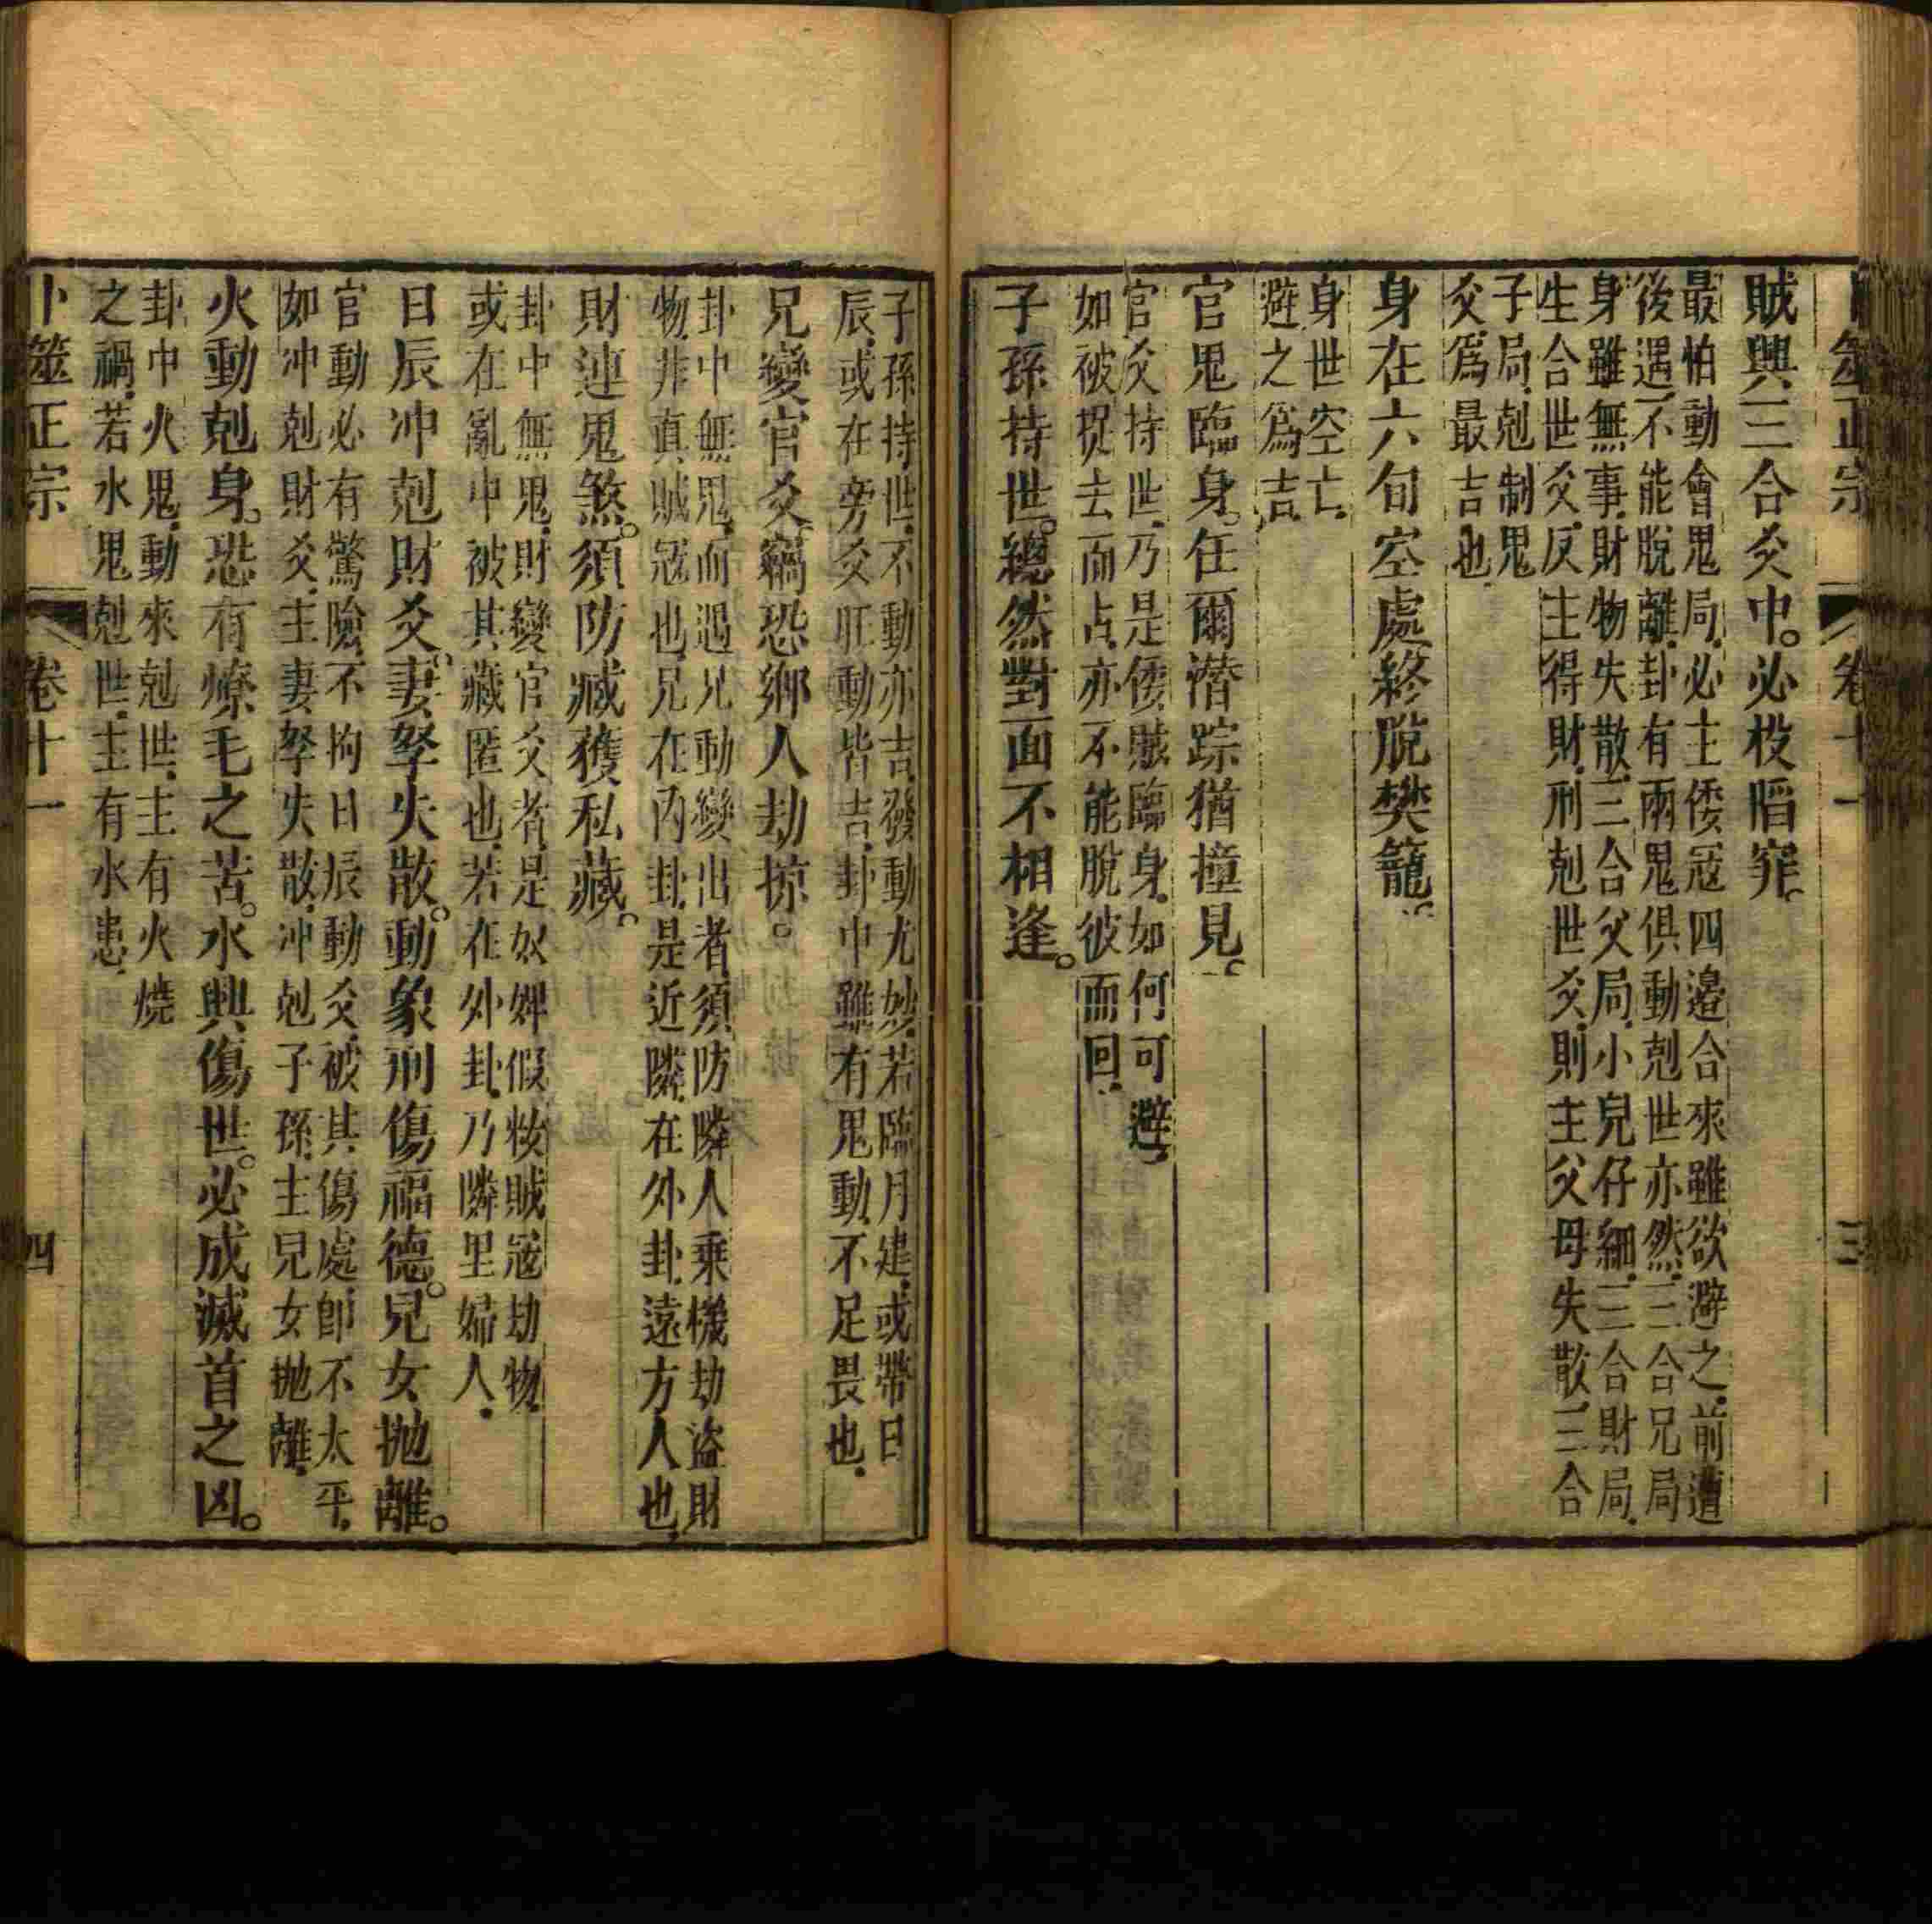 卜筮正宗 卷十一 三
賊興三合爻中。必投陷穽。
最怕動會鬼局。必主倭寇四邊合來雖欲避之。前遭
後遇。不能脫離。卦有兩鬼俱動剋世亦然。三合兄局
身雖無事。財物失散。三合父局。小兒仔細。三合財局。
生合世爻。反主得財。刑剋世爻。則主父母失散。三合
子局。剋制鬼
爻。爲最吉也。
身在六旬空處終脫樊籠。
身世空亡。
避之爲吉。
官鬼臨身。任爾潛踪猶撞見。
官爻持世。乃是倭賊臨身。如何可避。
如被捉去而占。亦不能脫彼而回。
子孫持世。總然對面不相逢。
子孫持世。不動亦吉。發動尤妙。若臨月建。或帶日
辰。或在旁爻旺動皆吉。卦中雖有鬼動。不足畏也。
兄變官爻。竊恐鄉人劫掠。
卦中無鬼。而遇兄動變出者。須防隣人乗機劫盜財
物。非真賊寇也。兄在內卦。是近隣。在外卦。遠方人也。
財連鬼煞。須防臧獲私藏。
卦中無鬼。財變官爻者。是奴婢假妝賊寇劫物。
或在亂中被其藏匿也。若在外卦。乃隣里婦人。
日辰冲剋財爻。妻孥失散。動象刑傷福德。兒女抛離。
官動必有驚險。不拘日辰動爻。被其傷處。卽不太平。
如冲剋財爻。主妻孥失散。冲剋子孫。主兒女抛離。
火動剋身。恐有燎毛之苦。水興傷世。必成滅首之凶。
卦中火鬼。動來剋世。主有火燒
之禍。若水鬼剋世。主有水患。
卜筮正宗 卷十一 四